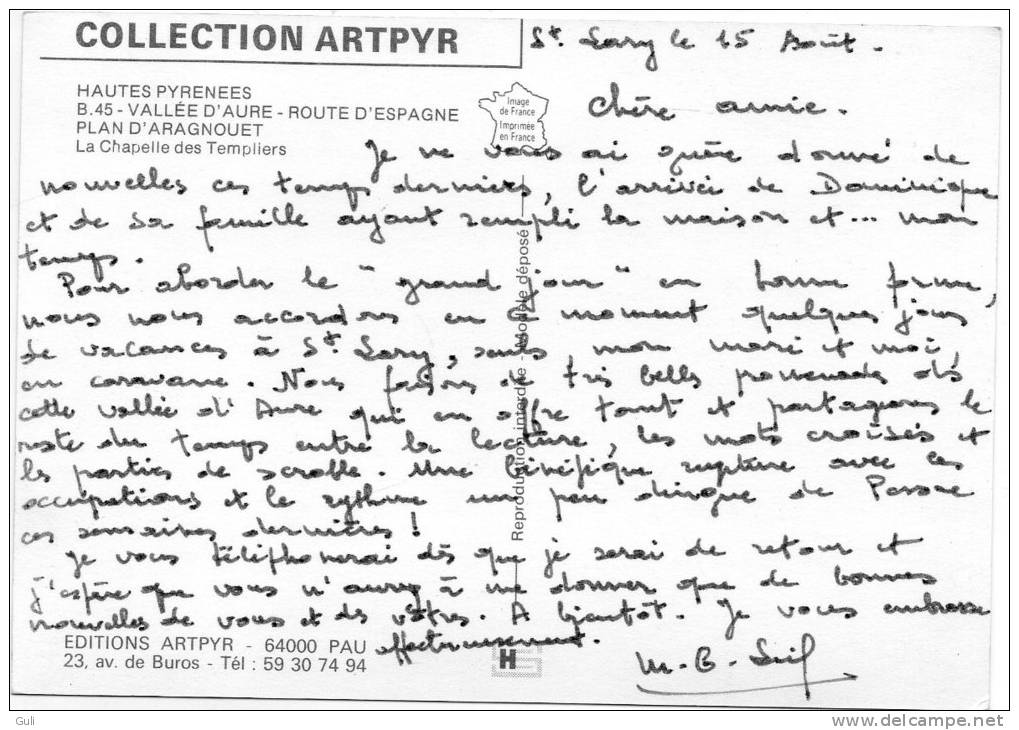 COLLECTION ARTPYR
HAUTES PYRENEES
B.45 - VALLÉE D'AURE - ROUTE D'ESPAGNE
PLAN D'ARAGNOUET
La Chapelle des Templiers
Image
de France
Imprimée
en France
St. Lary le 15 Août.
Chère amie.
Je ne vous ai guère donné de
nouvelles ces temps derniers, l'arrivée de Dominique
et de sa famille ayant rempli la maison et... mon
temps.
Pour aborder le "grand jour" en bonne forme,
nous nous accordons en ce moment quelques jours
de vacances à St Lary, seuls, mon mari et moi,
en caravane. Nous faisons de très belles promenades ds
cette vallée d'Aure qui en offre tant et partageons le
reste du temps entre la lecture, les mots croisés et
les parties de scrabble. Une bénéfique rupture avec les
occupations et le rythme un peu dingue de Passac
ces semaines dernières !
Je vous téléphonerai dès que je serai de retour et
j'espère que vous n'aurez à me donner que de bonnes
nouvelles de vous et des vôtres. A bientôt. Je vous embrasse
affectueusement.
M-B-
Reproduction interdite - Modèle déposé
EDITIONS ARTPYR - 64000 PAU
23, av. de Buros - Tél : 59 30 74 94
H
Guli
www.delcampe.net